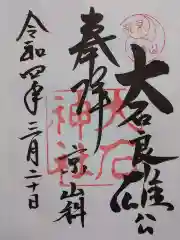 大石良雄公
奉拝 京山科
令和四年三月二十日
大石
神社